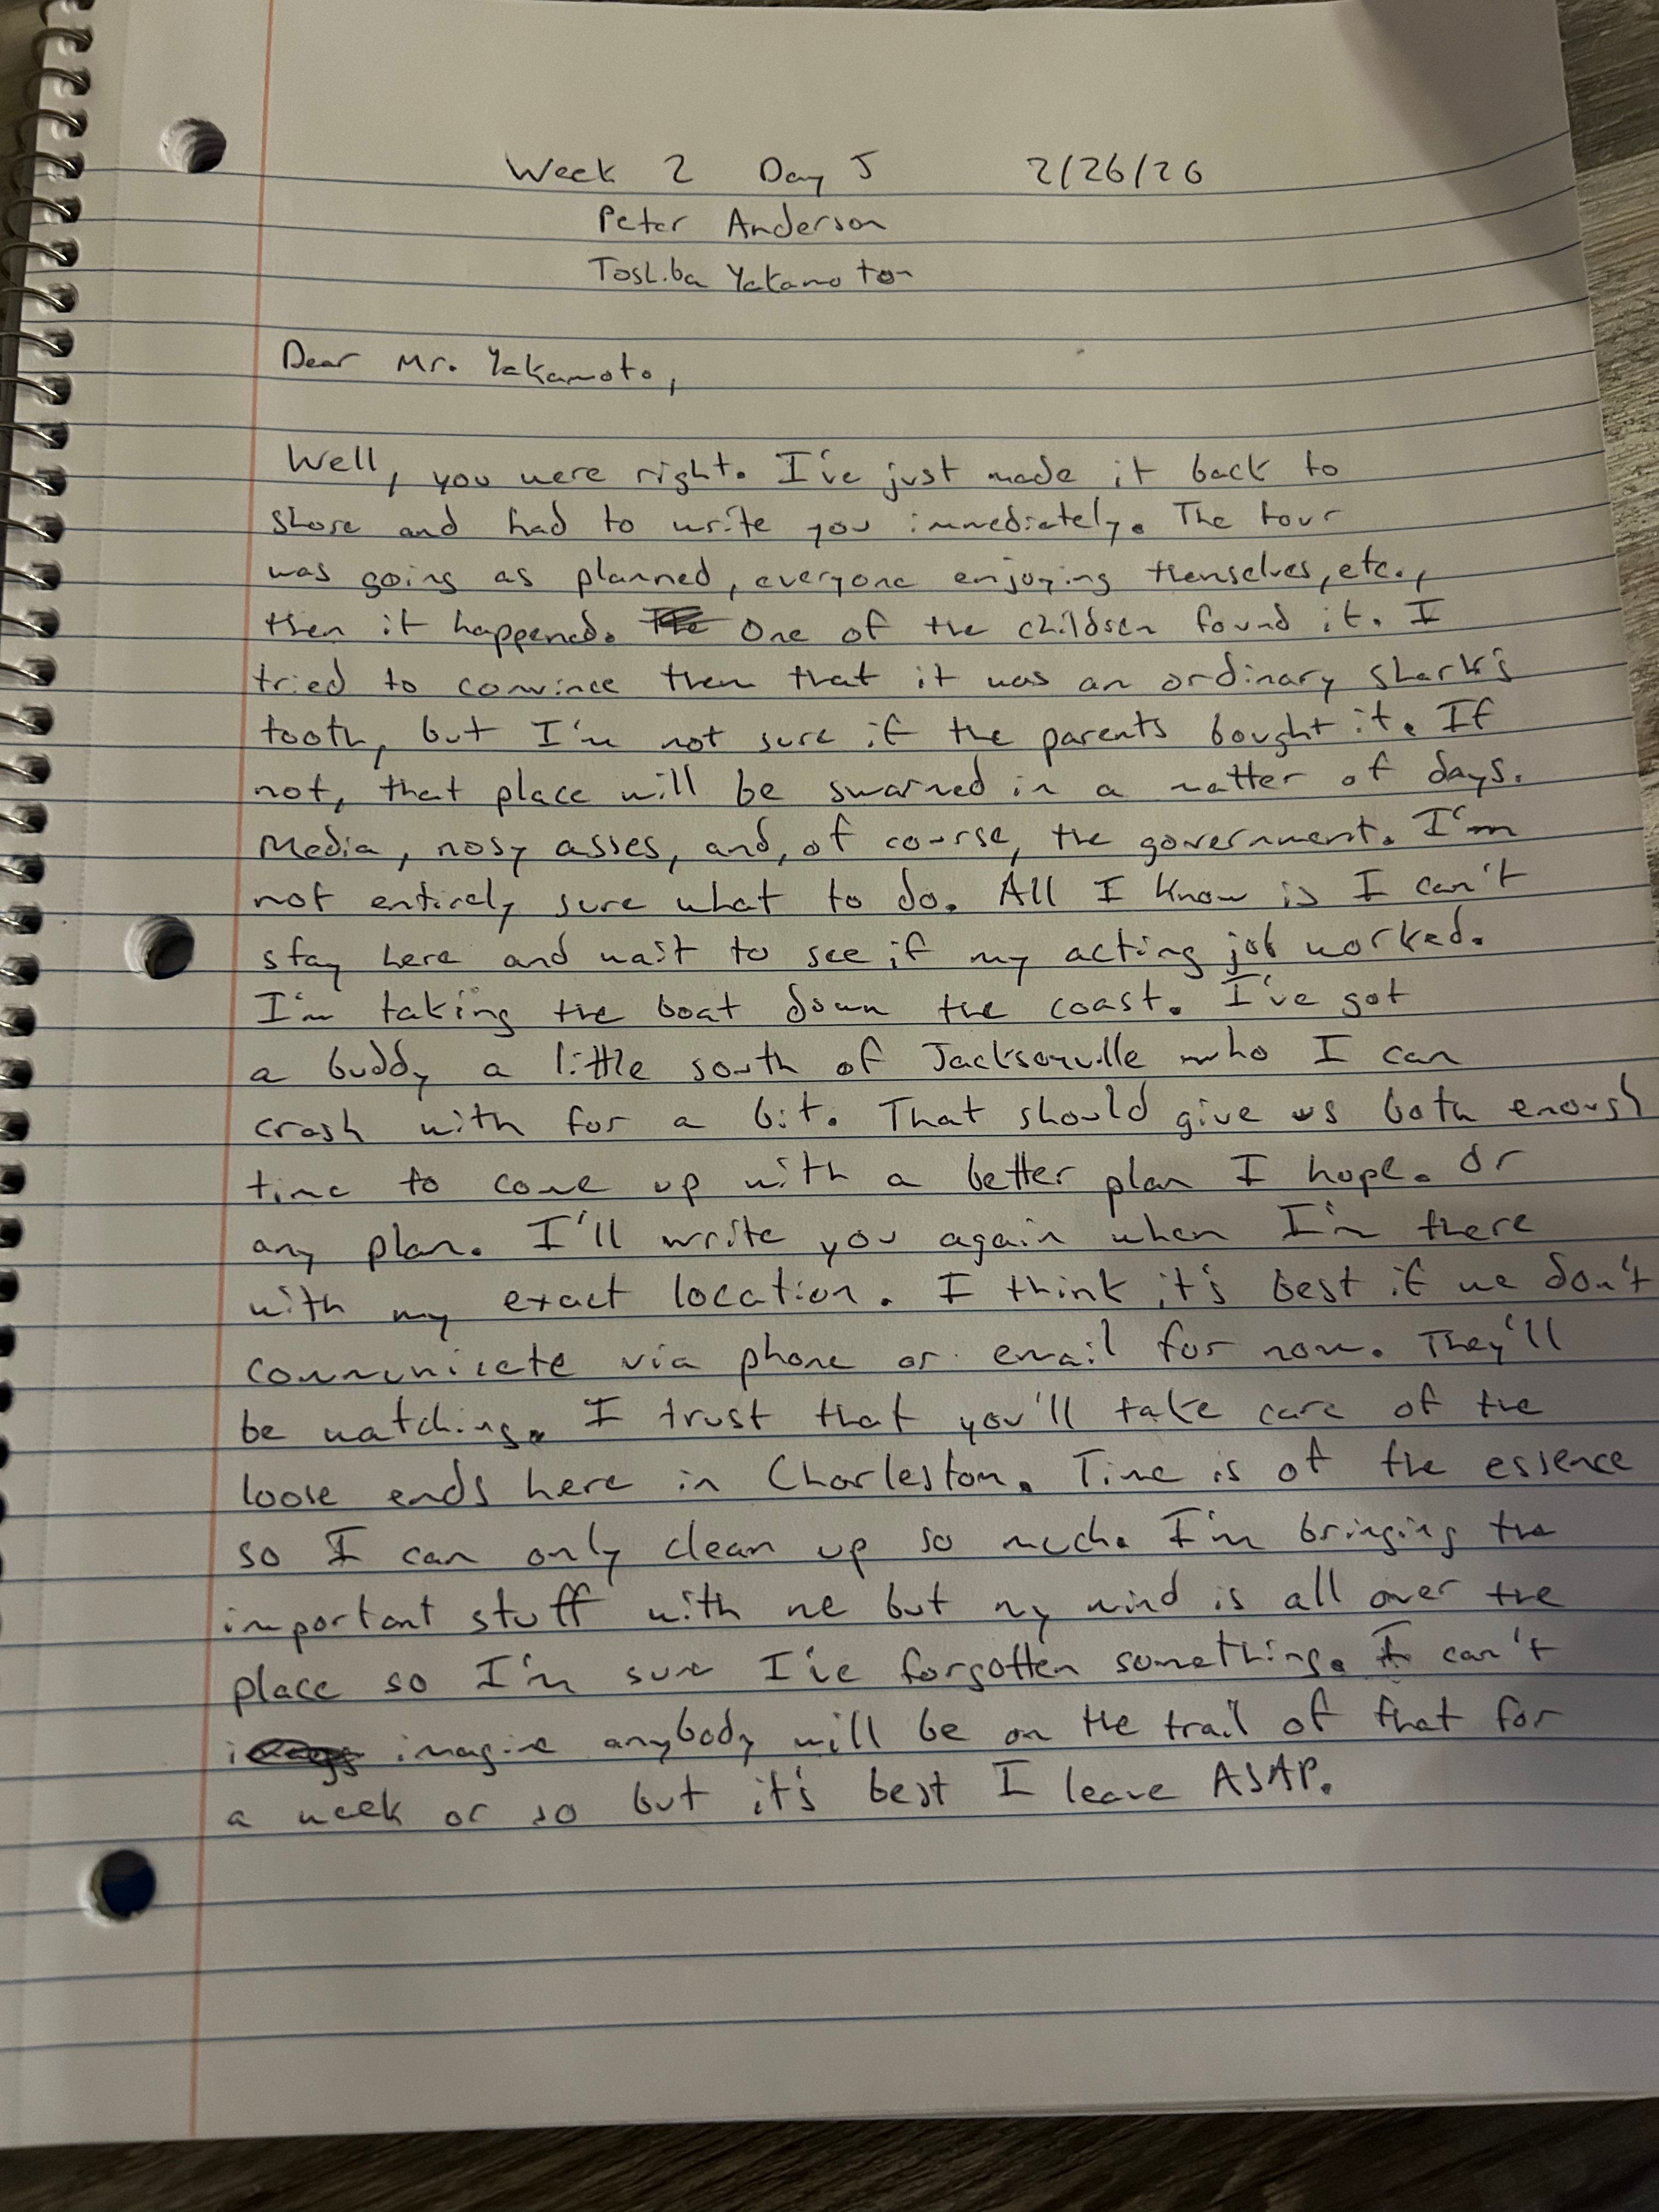 Week 2 Day 5 2/26/26
Peter Anderson
Toshiba Yakamoton
Dear Mr. Yakamoto,
Well, you were right. I've just made it back to
shore and had to write you immediately. The tour
was going as planned, everyone enjoying themselves, etc.,
then it happened. One of the children found it. I
tried to convince them that it was an ordinary shark's
tooth, but I'm not sure if the parents bought it. If
not, that place will be swarmed in a matter of days.
Media, nosy asses, and, of course, the government. I'm
not entirely sure what to do. All I know is I can't
stay here and wait to see if my acting job worked.
I'm taking the boat down the coast. I've got
a buddy a little south of Jacksonville who I can
crash with for a bit. That should give us both enough
time to come up with a better plan I hope. Or
any plan. I'll write you again when I'm there
with my exact location. I think it's best if we don't
communicate via phone or email for now. They'll
be watching. I trust that you'll take care of the
loose ends here in Charleston. Time is of the essence
so I can only clean up so much. I'm bringing the
important stuff with me but my mind is all over the
place so I'm sure I've forgotten something. I can't
imagine anybody will be on the trail of that for
a week or so but it's best I leave ASAP.